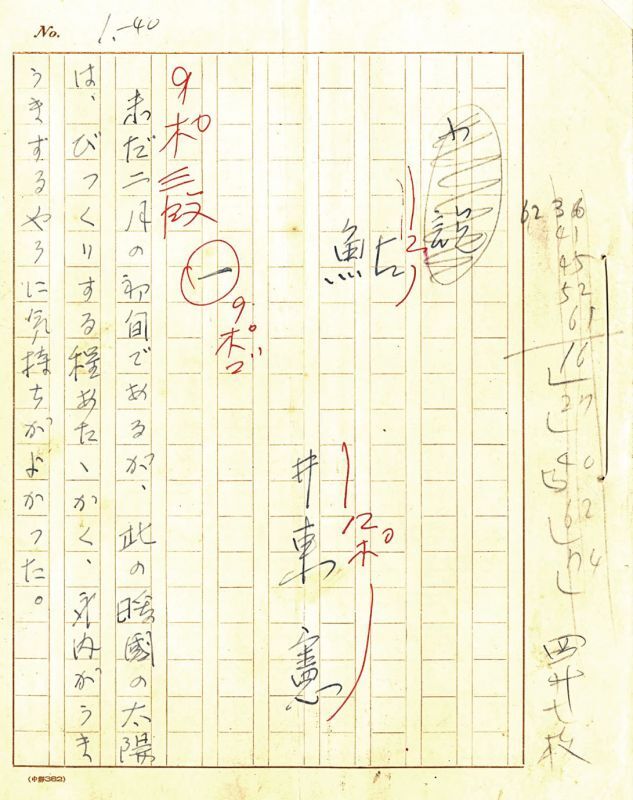 No. 1.-40
62 36
41
45
52
61
16
27
40
62
74
鮎
2号
井東憲
12ポ
一
9ポゴ
9ポ三段
未だ二月の初旬であるが、此の暖國の太陽
は、びつくりする程あたゝかく、身内がうき
うきするやうに気持ちがよかつた。